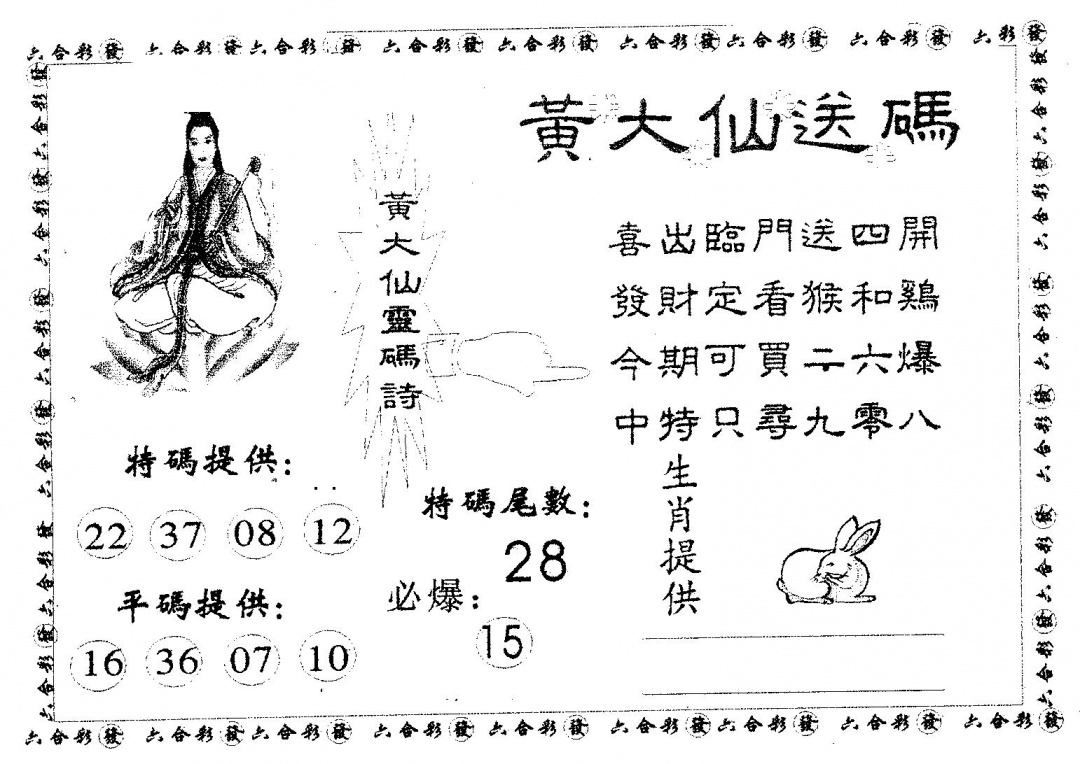 六合彩發 六合彩發六合彩發 六合彩發 六合彩發 六合彩發六合彩發 六合彩發 六彩發
黃大仙送碼
黃大仙靈碼詩
喜出臨門送四開
發財定看猴和鷄
今期可買二六爆
中特只尋九零八
特碼提供：
22 37 08 12
平碼提供：
16 36 07 10
特碼尾數：
28
必爆：
15
生肖提供
六合彩發 六合彩發六合彩發 六合彩發 六合彩發 六合彩發六合彩發 六合彩發 六合彩發